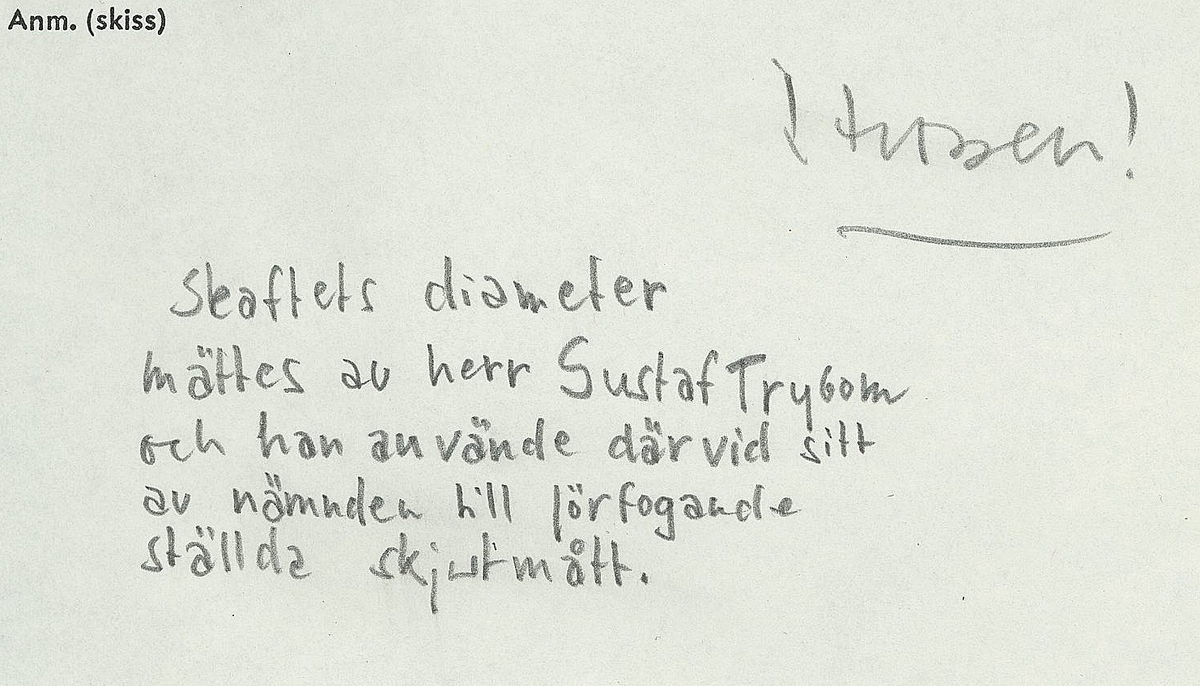 Anm. (skiss)
Skaftets diameter
mättes av herr Gustaf Trybom
och han använde därvid sitt
av nämnden till förfogande
ställda skjutmått.